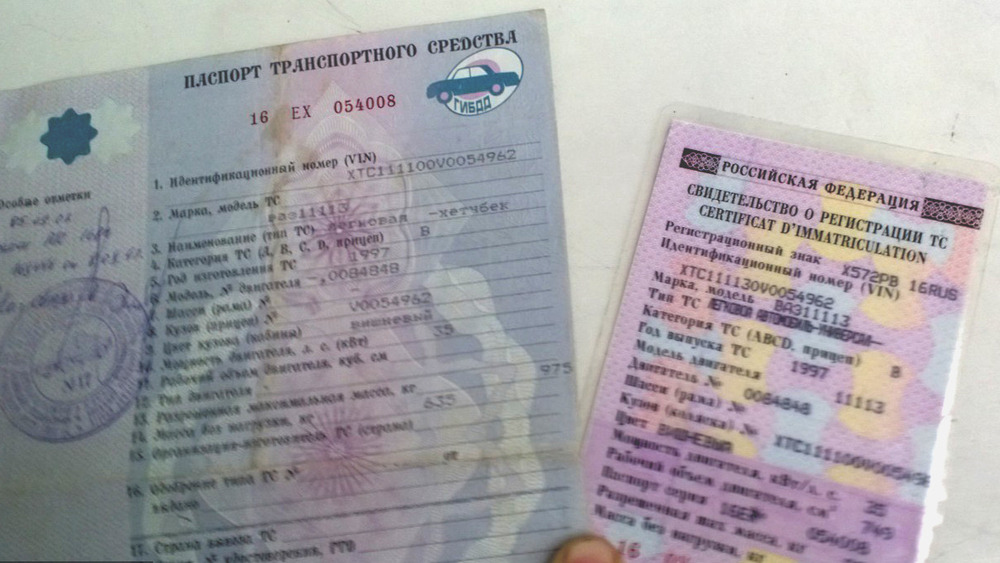 ПАСПОРТ ТРАНСПОРТНОГО СРЕДСТВА
ГИБДД
16 ЕХ 054008
Особые отметки
1. Идентификационный номер (VIN)
XTC111100V0054962
2. Марка, модель ТС
ВАЗ11113
3. Наименование (тип ТС) легковая -хетчбек
4. Категория ТС (A, B, C, D, прицеп) B
5. Год изготовления ТС 1997
6. Модель, № двигателя -,0084848
7. Шасси (рама) № -
8. Кузов (прицеп) № V0054962
9. Цвет кузова (кабины) вишневый
10. Мощность двигателя, л. с. (кВт) 35
11. Рабочий объем двигателя, куб. см
12. Тип двигателя
975
13. Разрешенная максимальная масса, кг
14. Масса без нагрузки, кг 635
15. Организация-изготовитель ТС (страна)
от
16. Одобрение типа ТС №
выдано
17. Страна вывоза ТС
№17
РОССИЙСКАЯ ФЕДЕРАЦИЯ
СВИДЕТЕЛЬСТВО О РЕГИСТРАЦИИ ТС
CERTIFICAT D'IMMATRICULATION
Регистрационный знак Х572РВ 16RUS
Идентификационный номер (VIN)
XTC111130V0054962
Марка, модель ВАЗ11113
Тип ТС ЛЕГКОВОЙ АВТОМОБИЛЬ-УНИВЕРСАЛ-
Категория ТС (ABCD, прицеп) B
Год выпуска ТС 1997
Модель двигателя 11113
Двигатель № 0084848
Шасси (рама) №
Кузов (коляска) № XTC111100V005496
Цвет ВИШНЕВЫЙ
Мощность двигателя, кВт/л. с. 25
Рабочий объем двигателя, см³ 749
Паспорт серия 16ЕХ 054008
Разрешенная max масса, кг
Масса без нагрузки, кг
16